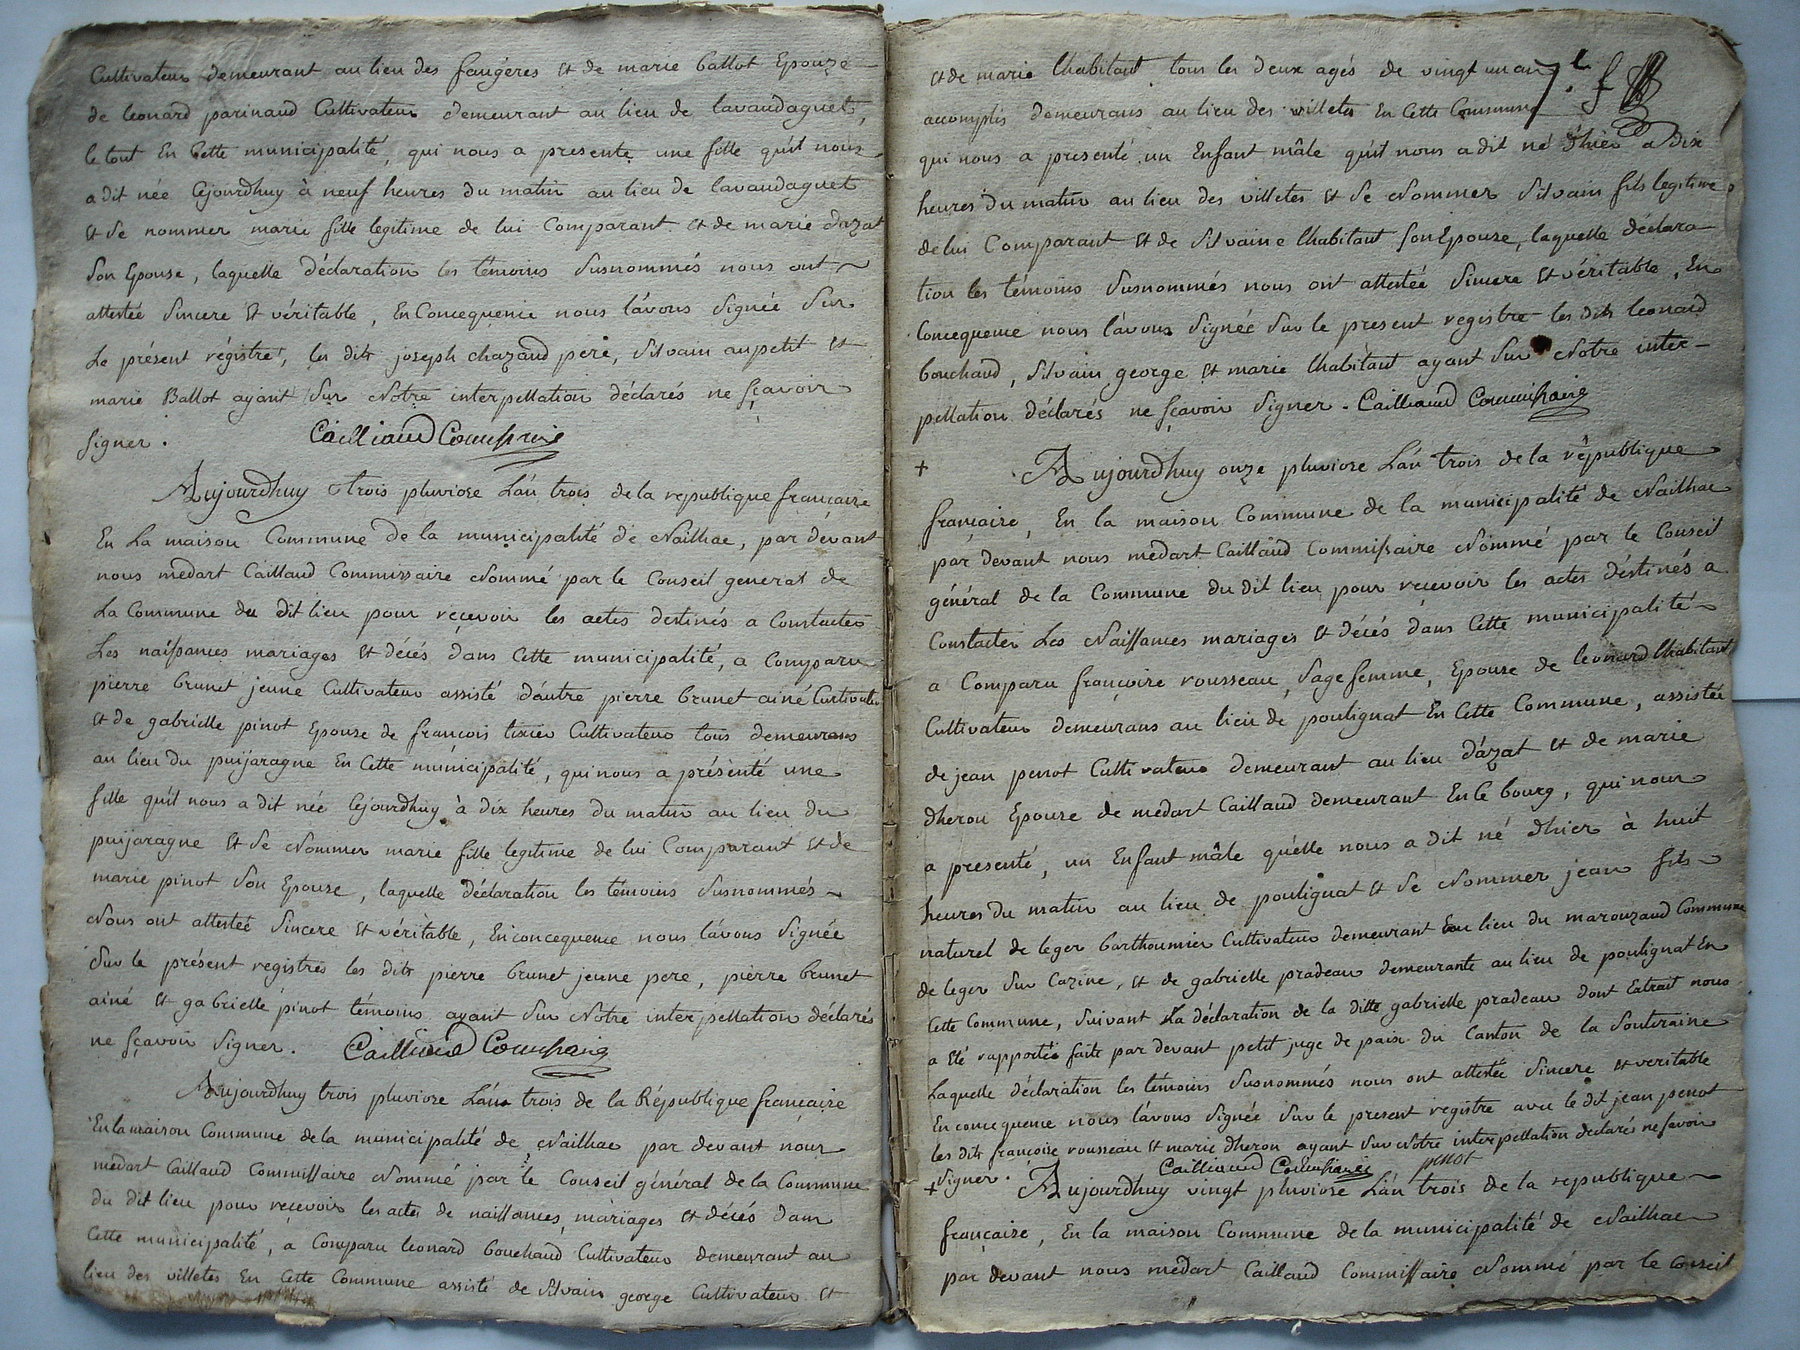 Cultivateur demeurant au lieu des faugeres et de marie ballot Epouze
de leonard parinaud Cultivateur demeurant au lieu de lavaudaguet,
le tout En Cette municipalité, qui nous a presenté une fille qu'il nous
a dit née Cejourdhuy à neuf heures du matin au lieu de lavaudaguet
et se nommer marie fille legitime de lui Comparant et de marie dazat
son Epouse, laquelle déclaration les témoins susnommés nous ont
attestée sincere et véritable, En Concequence nous l'avons signée sur
Le présent régistre, les dits joseph chazaud pere, silvain aupetit et
marie Ballot ayant sur Notre interpellation déclarés ne sçavoir
signer. Cailliaud Commissaire
Aujourdhuy trois pluviose L'an trois de la republique francaise
En La maison Commune de la municipalité de Naillac, par devant
nous medart Caillaud Commissaire Nommé par le Conseil general de
La Commune du dit lieu pour recevoir les actes destinés a Constater
Les naissances mariages et décés dans Cette municipalité, a Comparu
pierre brunet jeune Cultivateur assisté d'autre pierre brunet ainé Cultivateur
et de gabrielle pinot Epouse de françois tixier Cultivateur tous demeurans
au lieu du puijaragne En Cette municipalité, qui nous a présenté une
fille qu'il nous a dit née Cejourdhuy à dix heures du matin au lieu du
puijaragne et se Nommer marie fille legitime de lui Comparant et de
marie pinot son Epouse, laquelle déclaration les témoins susnommés
Nous ont attestée sincere et véritable, En concequence nous l'avons signée
sur le présent registres les dits pierre brunet jeune pere, pierre brunet
ainé et gabrielle pinot témoins ayant sur Notre interpellation déclarés
ne sçavoir signer. Cailliaud Commissaire
Aujourdhuy trois pluviose L'an trois de la République francaise
En la maison Commune de la municipalité de Naillac par devant nous
médart Caillaud Commissaire Nommé par le Conseil général de la Commune
du dit lieu pour recevoir les actes de naissances, mariages et décés dans
Cette municipalité, a Comparu leonard bouchaud Cultivateur demeurant au
lieu des villetes En Cette Commune assisté de silvain george Cultivateur et
et de marie lhabitant tous les deux agés de vingt un an
accomplis demeurans au lieu des villetes En Cette Commune
qui nous a presenté un Enfant mâle qu'il nous a dit né d'hier a dix
heures du matin au lieu des villetes et se Nommer silvain fils legitime
de lui Comparant et de silvaine lhabitant son Epouse, laquelle déclara-
tion les témoins susnommés nous ont attestée sincere et véritable, En
Concequence nous l'avons signée sur le present registre les dits leonard
bouchaud, silvain george et marie lhabitant ayant sur Notre inter-
pellation déclarés ne sçavoir signer. Cailliaud Commissaire
+ Aujourdhuy onze pluviose L'an trois de la république
francaise, En la maison Commune de la municipalité de Naillac
par devant nous médart Caillaud Commissaire Nommé par le Conseil
général de la Commune du dit lieu pour recevoir les actes déstinés a
Constater Les Naissances mariages et décés dans Cette municipalité
a Comparu françoise rousseau, sage femme, Epouse de leonard lhabitant
Cultivateur demeurans au lieu de poulignat En Cette Commune, assistée
de jean penot Cultivateur demeurant au lieu d'azat et de marie
dheron Epouse de médart Caillaud demeurant En le bourg, qui nous
a presenté, un Enfant mâle qu'elle nous a dit né d'hier à huit
heures du matin au lieu de poulignat et se Nommer jean fils
naturel de leger barthoumier Cultivateur demeurant au lieu du marouzaud Commune
de leger sur Cazine, et de gabrielle pradeau demeurante au lieu de poulignat En
Cette Commune, suivant La déclaration de la ditte gabrielle pradeau dont Extrait nous
a été rapportée faite par devant petit juge de paix du Canton de la souteraine
Laquelle déclaration les témoins susnommés nous ont attestée sincere et veritable
En concequence nous l'avons signée sur le present registre avec le dit jean penot
les dits francoise rousseau et marie dheron ayant sur Notre interpellation declarés ne savoir
signer. Cailliaud Commissaire penot
+ Aujourdhuy vingt pluviose L'an trois de la republique
française, En la maison Commune de la municipalité de Naillac
par devant nous médart Caillaud Commissaire Nommé par le Conseil